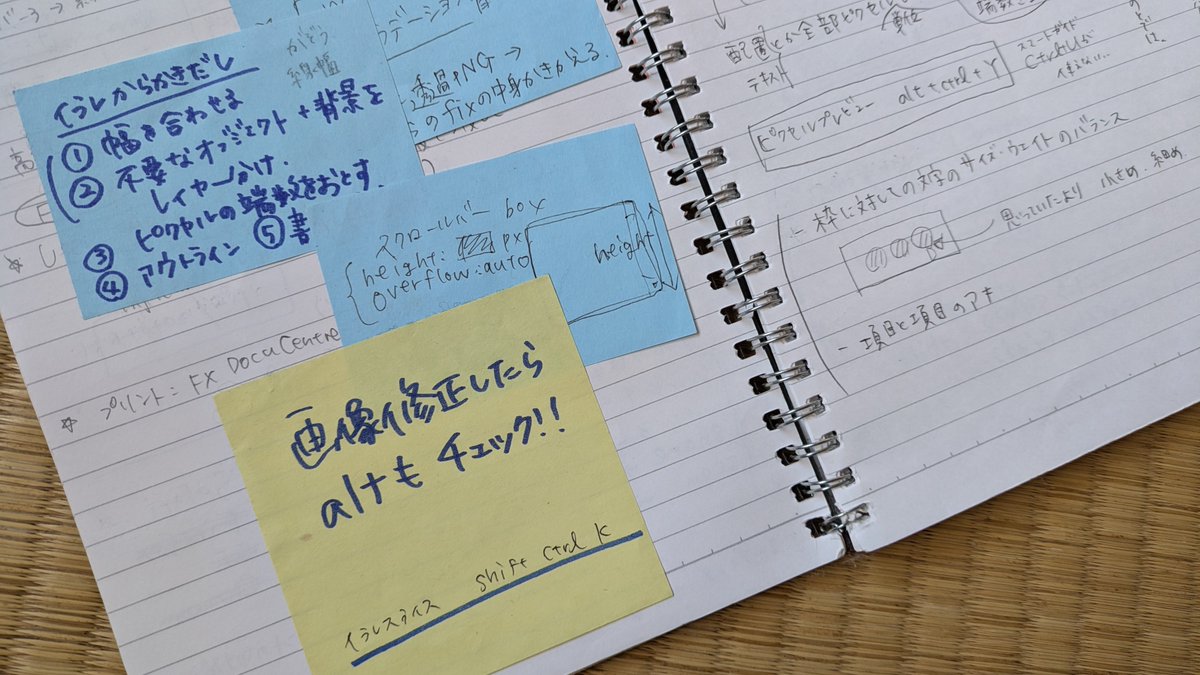 イラレからかきだし
① 幅を合わせる
② 不要なオブジェクト+背景を
レイヤーわけ.
③ ピクセルの端数をおとす.
④ アウトライン ⑤書
透過PNG →
のfixの中身かきかえる.
スクロールバー box
height: px
overflow:auto
height
* プリント: FX DocuCentre
画像修正したら
altも チェック!!
shift ctrl K
配置とか全部ピクセル単位
テキスト
ピクセルプレビュー alt+ctrl+Y
- 枠に対しての文字のサイズ・ウェイトのバランス
思っていたより 小さめ. 細め.
- 項目と項目のアキ